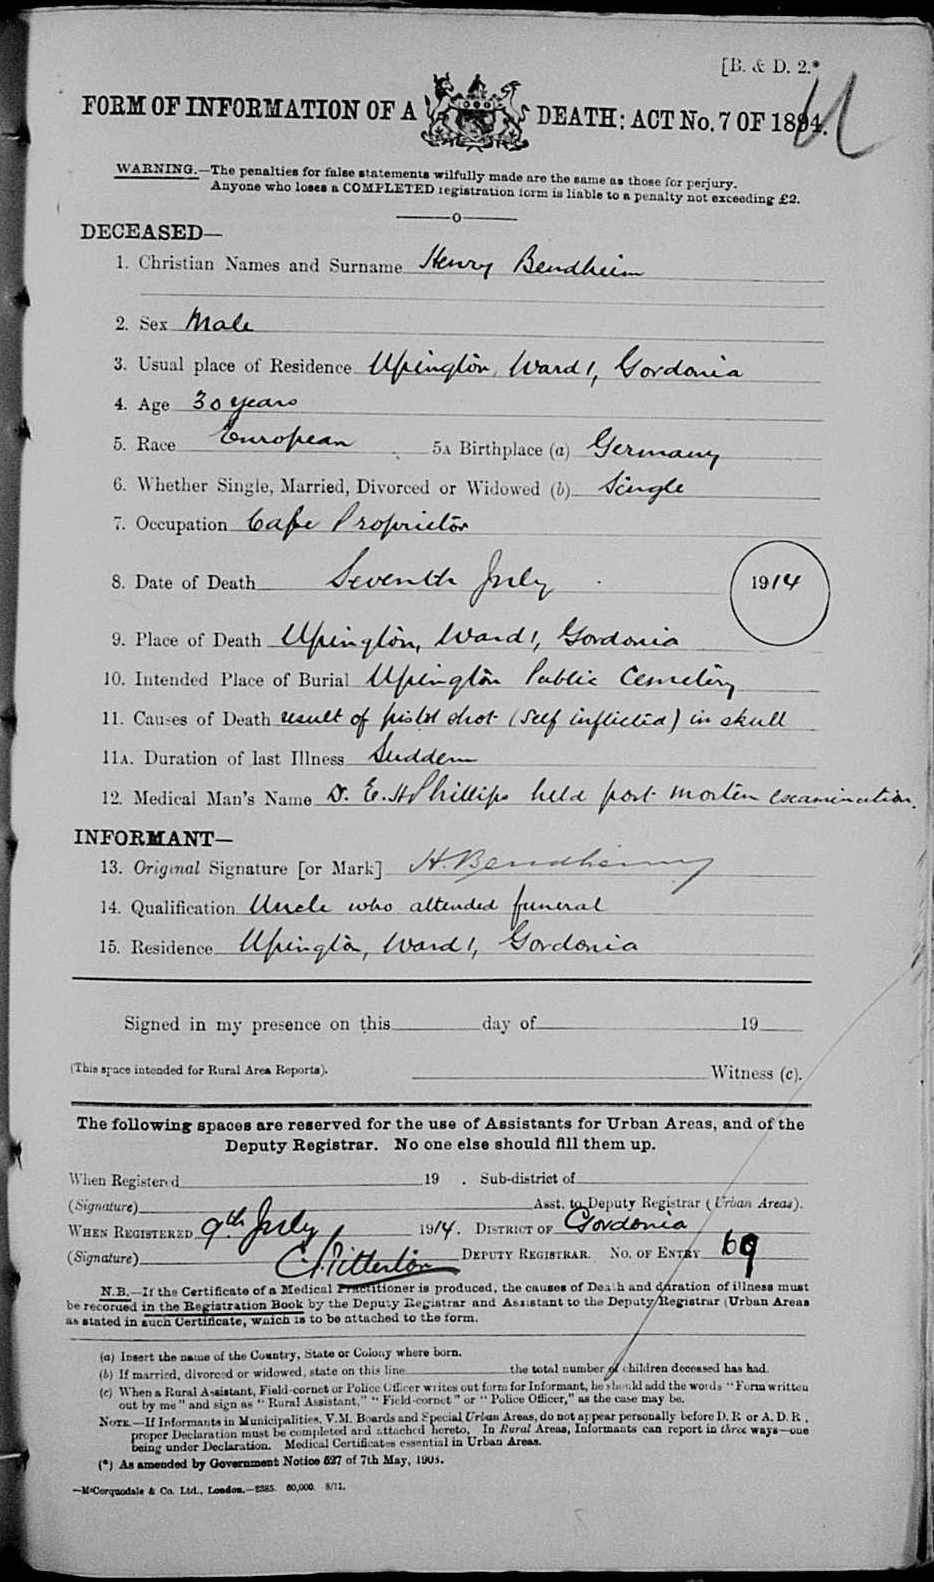 [B. & D. 2.*
FORM OF INFORMATION OF A DEATH: ACT No. 7 OF 1894.
WARNING.—The penalties for false statements wilfully made are the same as those for perjury.
Anyone who loses a COMPLETED registration form is liable to a penalty not exceeding £2.
DECEASED—
1. Christian Names and Surname Henry Bendheim
2. Sex Male
3. Usual place of Residence Upington, Ward 1, Gordonia
4. Age 30 years
5. Race European 5A Birthplace (a) Germany
6. Whether Single, Married, Divorced or Widowed (b) Single
7. Occupation Cafe Proprietor
8. Date of Death Seventh July 1914
9. Place of Death Upington, Ward 1, Gordonia
10. Intended Place of Burial Upington Public Cemetery
11. Causes of Death result of pistol shot (self inflicted) in skull
11A. Duration of last Illness Sudden
12. Medical Man's Name Dr. E. H Phillips held post morten examination.
INFORMANT—
13. Original Signature [or Mark] H. Bendheim
14. Qualification Uncle who attended funeral
15. Residence Upington, Ward 1, Gordonia
Signed in my presence on this day of 19
(This space intended for Rural Area Reports). Witness (c).
The following spaces are reserved for the use of Assistants for Urban Areas, and of the
Deputy Registrar. No one else should fill them up.
When Registered 19 . Sub-district of
(Signature) Asst. to Deputy Registrar (Urban Areas).
WHEN REGISTERED 9th July 1914. DISTRICT OF Gordonia
(Signature) DEPUTY REGISTRAR. NO. OF ENTRY 69
N.B.—If the Certificate of a Medical Practitioner is produced, the causes of Death and duration of illness must
be recorded in the Registration Book by the Deputy Registrar and Assistant to the Deputy Registrar (Urban Areas
as stated in such Certificate, which is to be attached to the form.
(a) Insert the name of the Country, State or Colony where born.
(b) If married, divorced or widowed, state on this line the total number of children deceased has had.
(c) When a Rural Assistant, Field-cornet or Police Officer writes out form for Informant, he should add the words "Form written
out by me" and sign as "Rural Assistant," "Field-cornet" or "Police Officer," as the case may be.
NOTE.—If Informants in Municipalities, V.M. Boards and Special Urban Areas, do not appear personally before D. R. or A. D. R.,
proper Declaration must be completed and attached hereto. In Rural Areas, Informants can report in three ways—one
being under Declaration. Medical Certificates essential in Urban Areas.
(*) As amended by Government Notice 527 of 7th May, 1903.
—McCorquodale & Co. Ltd., London.—2385. 60,000. 8/11.